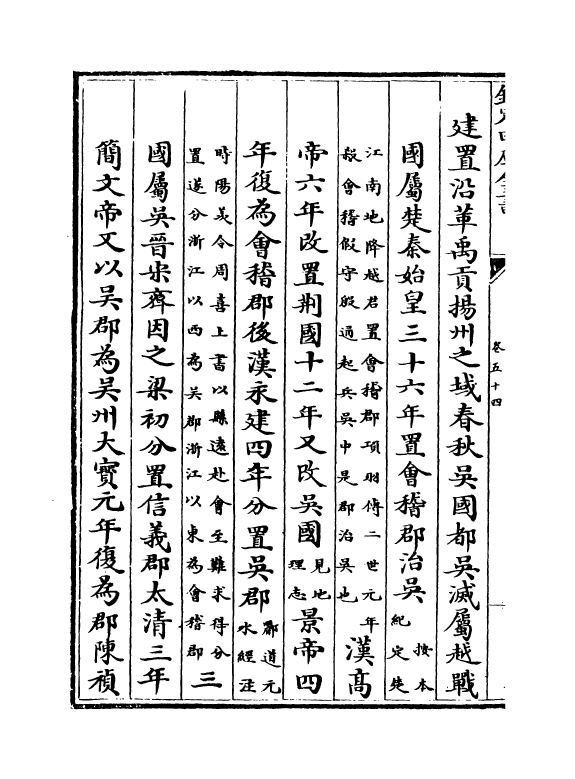 欽定四庫全書
卷五十四
建置沿革禹貢揚州之域春秋吳國都吳滅屬越戰
國屬楚秦始皇三十六年置會稽郡治吳按本紀定楚
江南地降越君置會稽郡項羽傳二世元年殺會稽假守殷通起兵吳中是郡治吳也漢髙
帝六年改置荆國十二年又改吳國見地理志景帝四
年復為會稽郡後漢永建四年分置吳郡酈道元水經注
時陽羡令周喜上書以縣逺赴會至難求得分置遂分浙江以西為吳郡浙江以東為會稽郡三
國屬吳晉宋齊因之梁初分置信義郡太清三年
簡文帝又以吳郡為吳州大寳元年復為郡陳禎